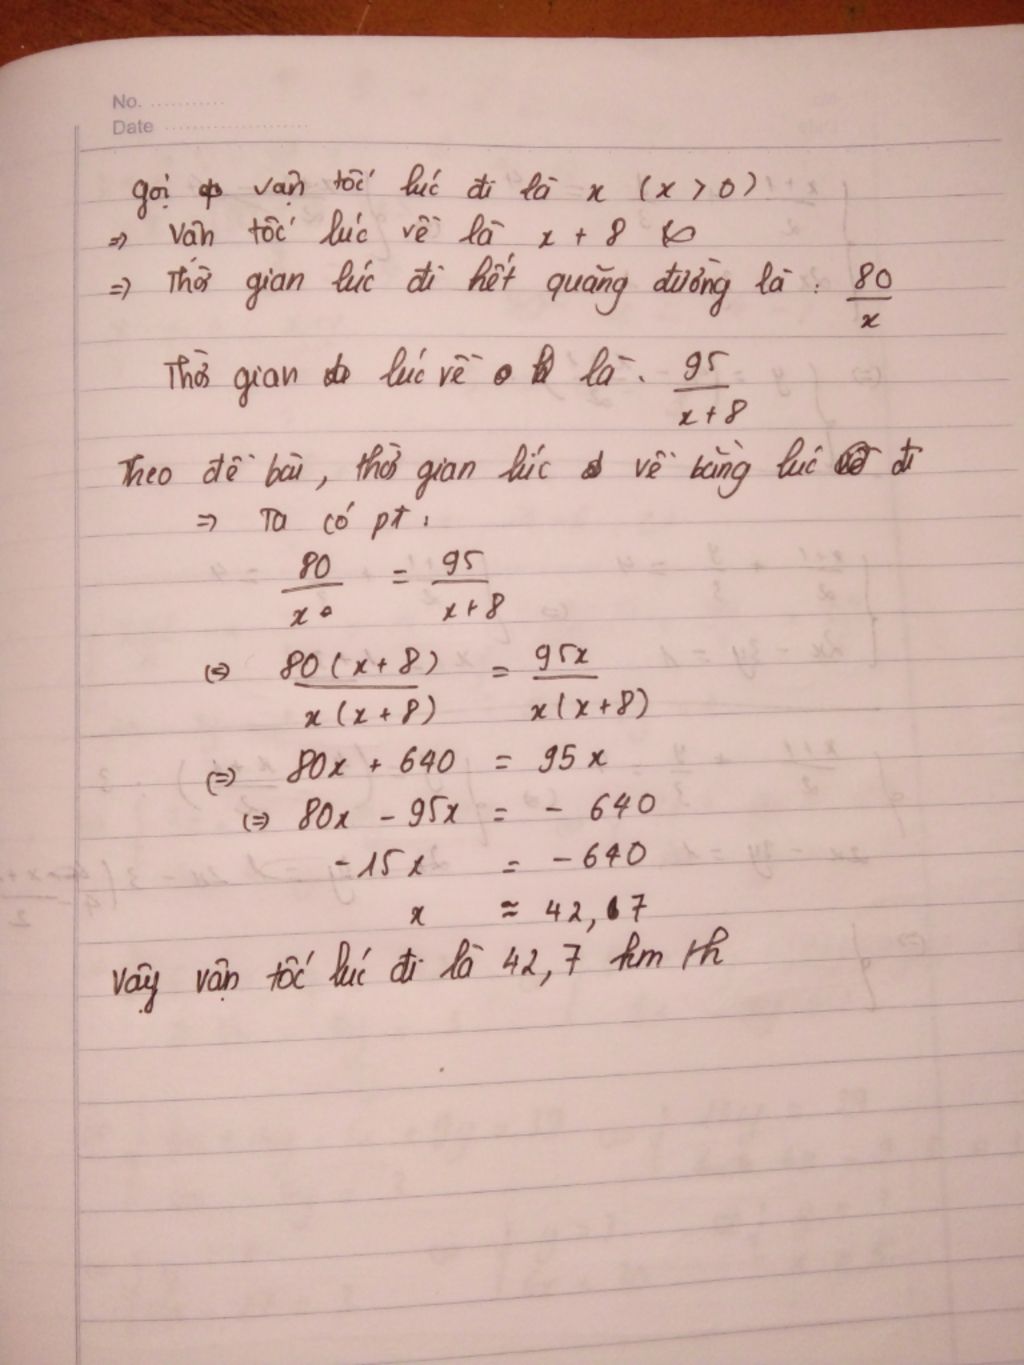 No. ...........
Date ......................
Gọi vận tốc lúc đi là x (x > 0)
=> Vận tốc lúc về là x + 8
=> Thời gian lúc đi hết quãng đường là : 80/x
Thời gian lúc về là : 95/(x+8)
Theo đề bài, thời gian lúc về bằng lúc đi
=> Ta có pt :
80/x = 95/(x+8)
(=) 80(x+8)/x(x+8) = 95x/x(x+8)
(=) 80x + 640 = 95x
(=) 80x - 95x = - 640
-15x = -640
x ≈ 42,67
Vậy vận tốc lúc đi là 42,7 km/h